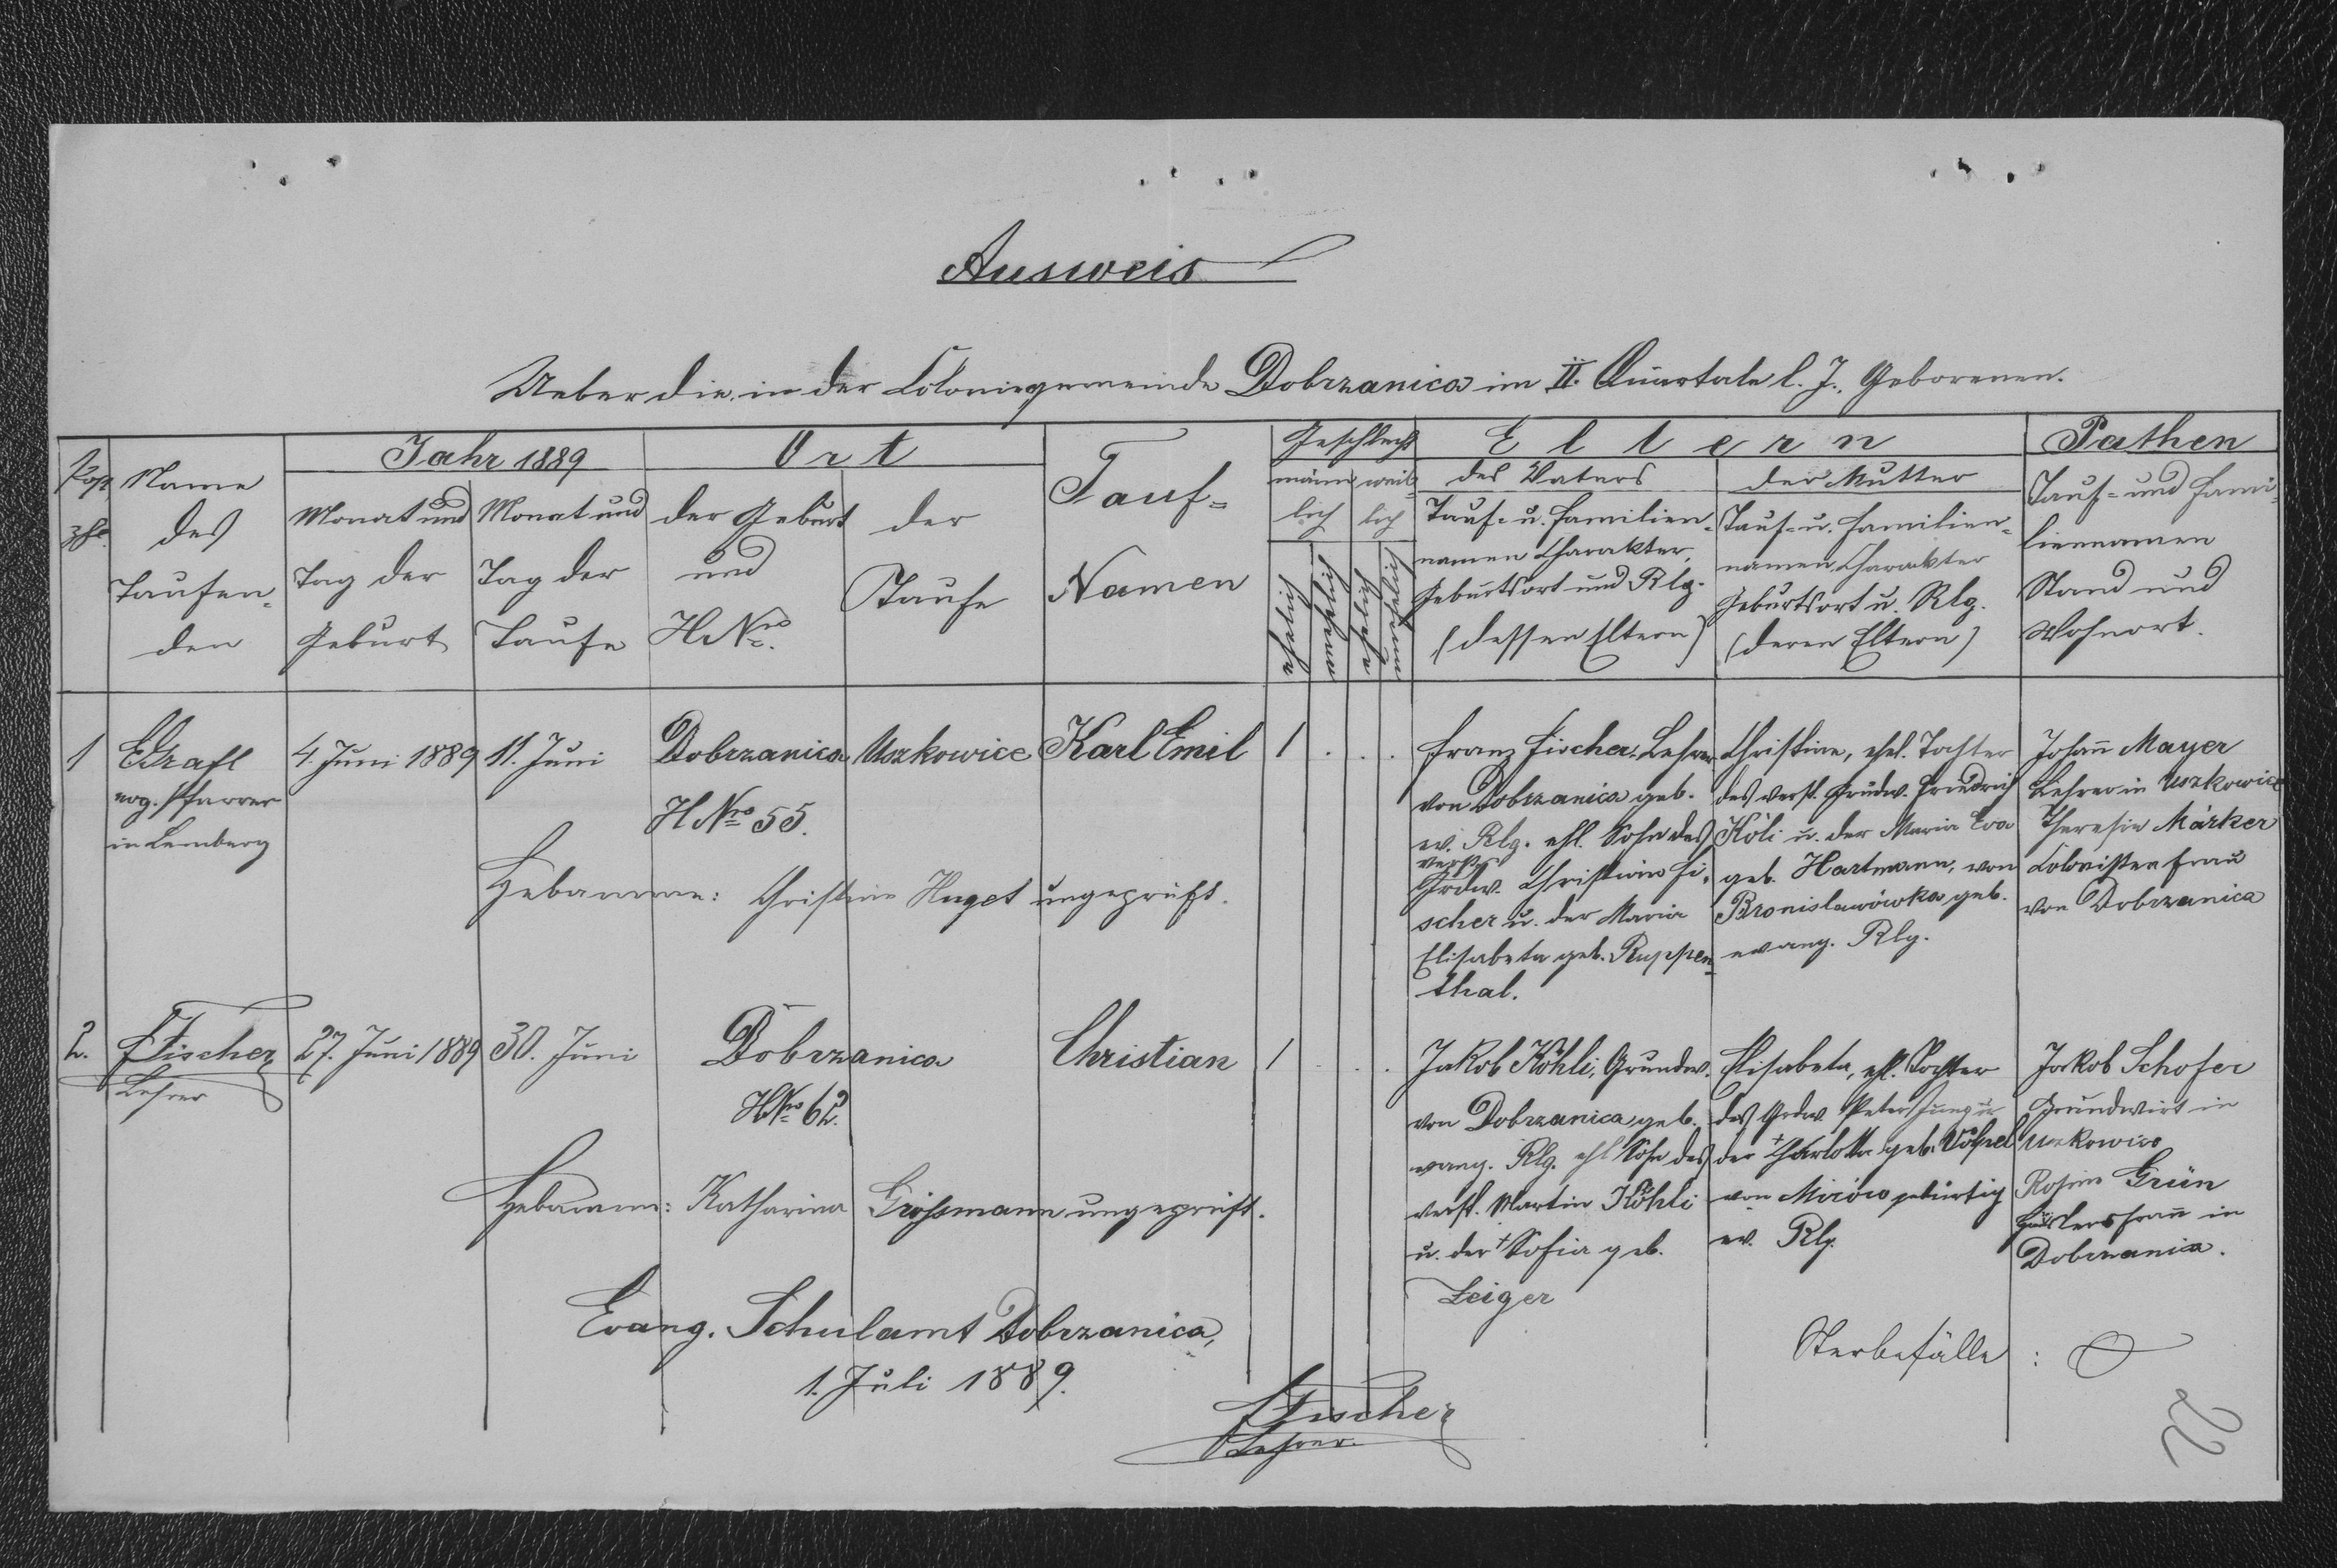 Ausweis
Ueber die in der Coloniegemeinde Dobrzanica im II. Quartale l. J. Geborenen.
Post
zhl.
Name
des
Taufen-
den
Jahr 1889
Monat und
Tag der
Geburt
Monat und
Tag der
Taufe
Ort
der Geburt
und
H Nro.
der
Taufe
Tauf-
Namen
Geschlecht
männ
lich
weib-
lich
ehelich
unehelich
ehelich
unehelich
Eltern
des Vaters
Tauf- u. Familien-
namen Charakter,
Geburtsort und Rlg.
(dessen Eltern)
der Mutter
Tauf- u. Familien-
namen, Charakter
Geburtsort u. Rlg.
(deren Eltern)
Pathen
Tauf- und Fami-
liennamen
Stand und
Wohnort.
1
EGrafl
evg. Pfarrer
in Lemberg
4. Juni 1889
11. Juni
Dobrzanica
H Nro 55.
Uszkowice
Karl Emil
1 . . .
Franz Fischer, Lehrer
von Dobrzanica geb.
ev. Rlg. ehl. Sohn des
verst.
Grdw. Christian Fi-
scher u. der Maria
Elisabeta geb. Ruppen-
thal.
Christine, ehel. Tochter
des verst. Grundw. Friedrich
Köli u. der Maria Eva
geb. Hartmann, von
Bronislawówka geb.
evang. Rlg.
Johann Mayer
Lehrer in Uszkowice
Theresia Märker
Colonisten frau
von Dobrzanica
Hebamme: Christine Huget ungeprüft.
2.
FFischer
Lehrer
27. Juni 1889
30. Juni
Dobrzanica
HNro 62.
Christian
1 . . .
Jakob Köhli, Grundw.
von Dobrzanica geb.
evang. Rlg. ehl Sohn des
verst. Martin Köhli
u. der + Sofia geb.
Zeiger
Elisabeta, ehl. Tochter
des Grdw. Peter Jung u.
der + Charlotta geb. Völpel
von Mirów gebürtig
ev. Rlg.
Jakob Schofer
Grundwirt in
Uszkowice
Rosina Grün
Häuslersfrau in
Dobrzanica.
Hebamme: Katharina Größmann ungeprüft.
Evang. Schulamt Dobrzanica,
1. Juli 1889.
FFischer
Lehrer.
Sterbefälle : 0
22